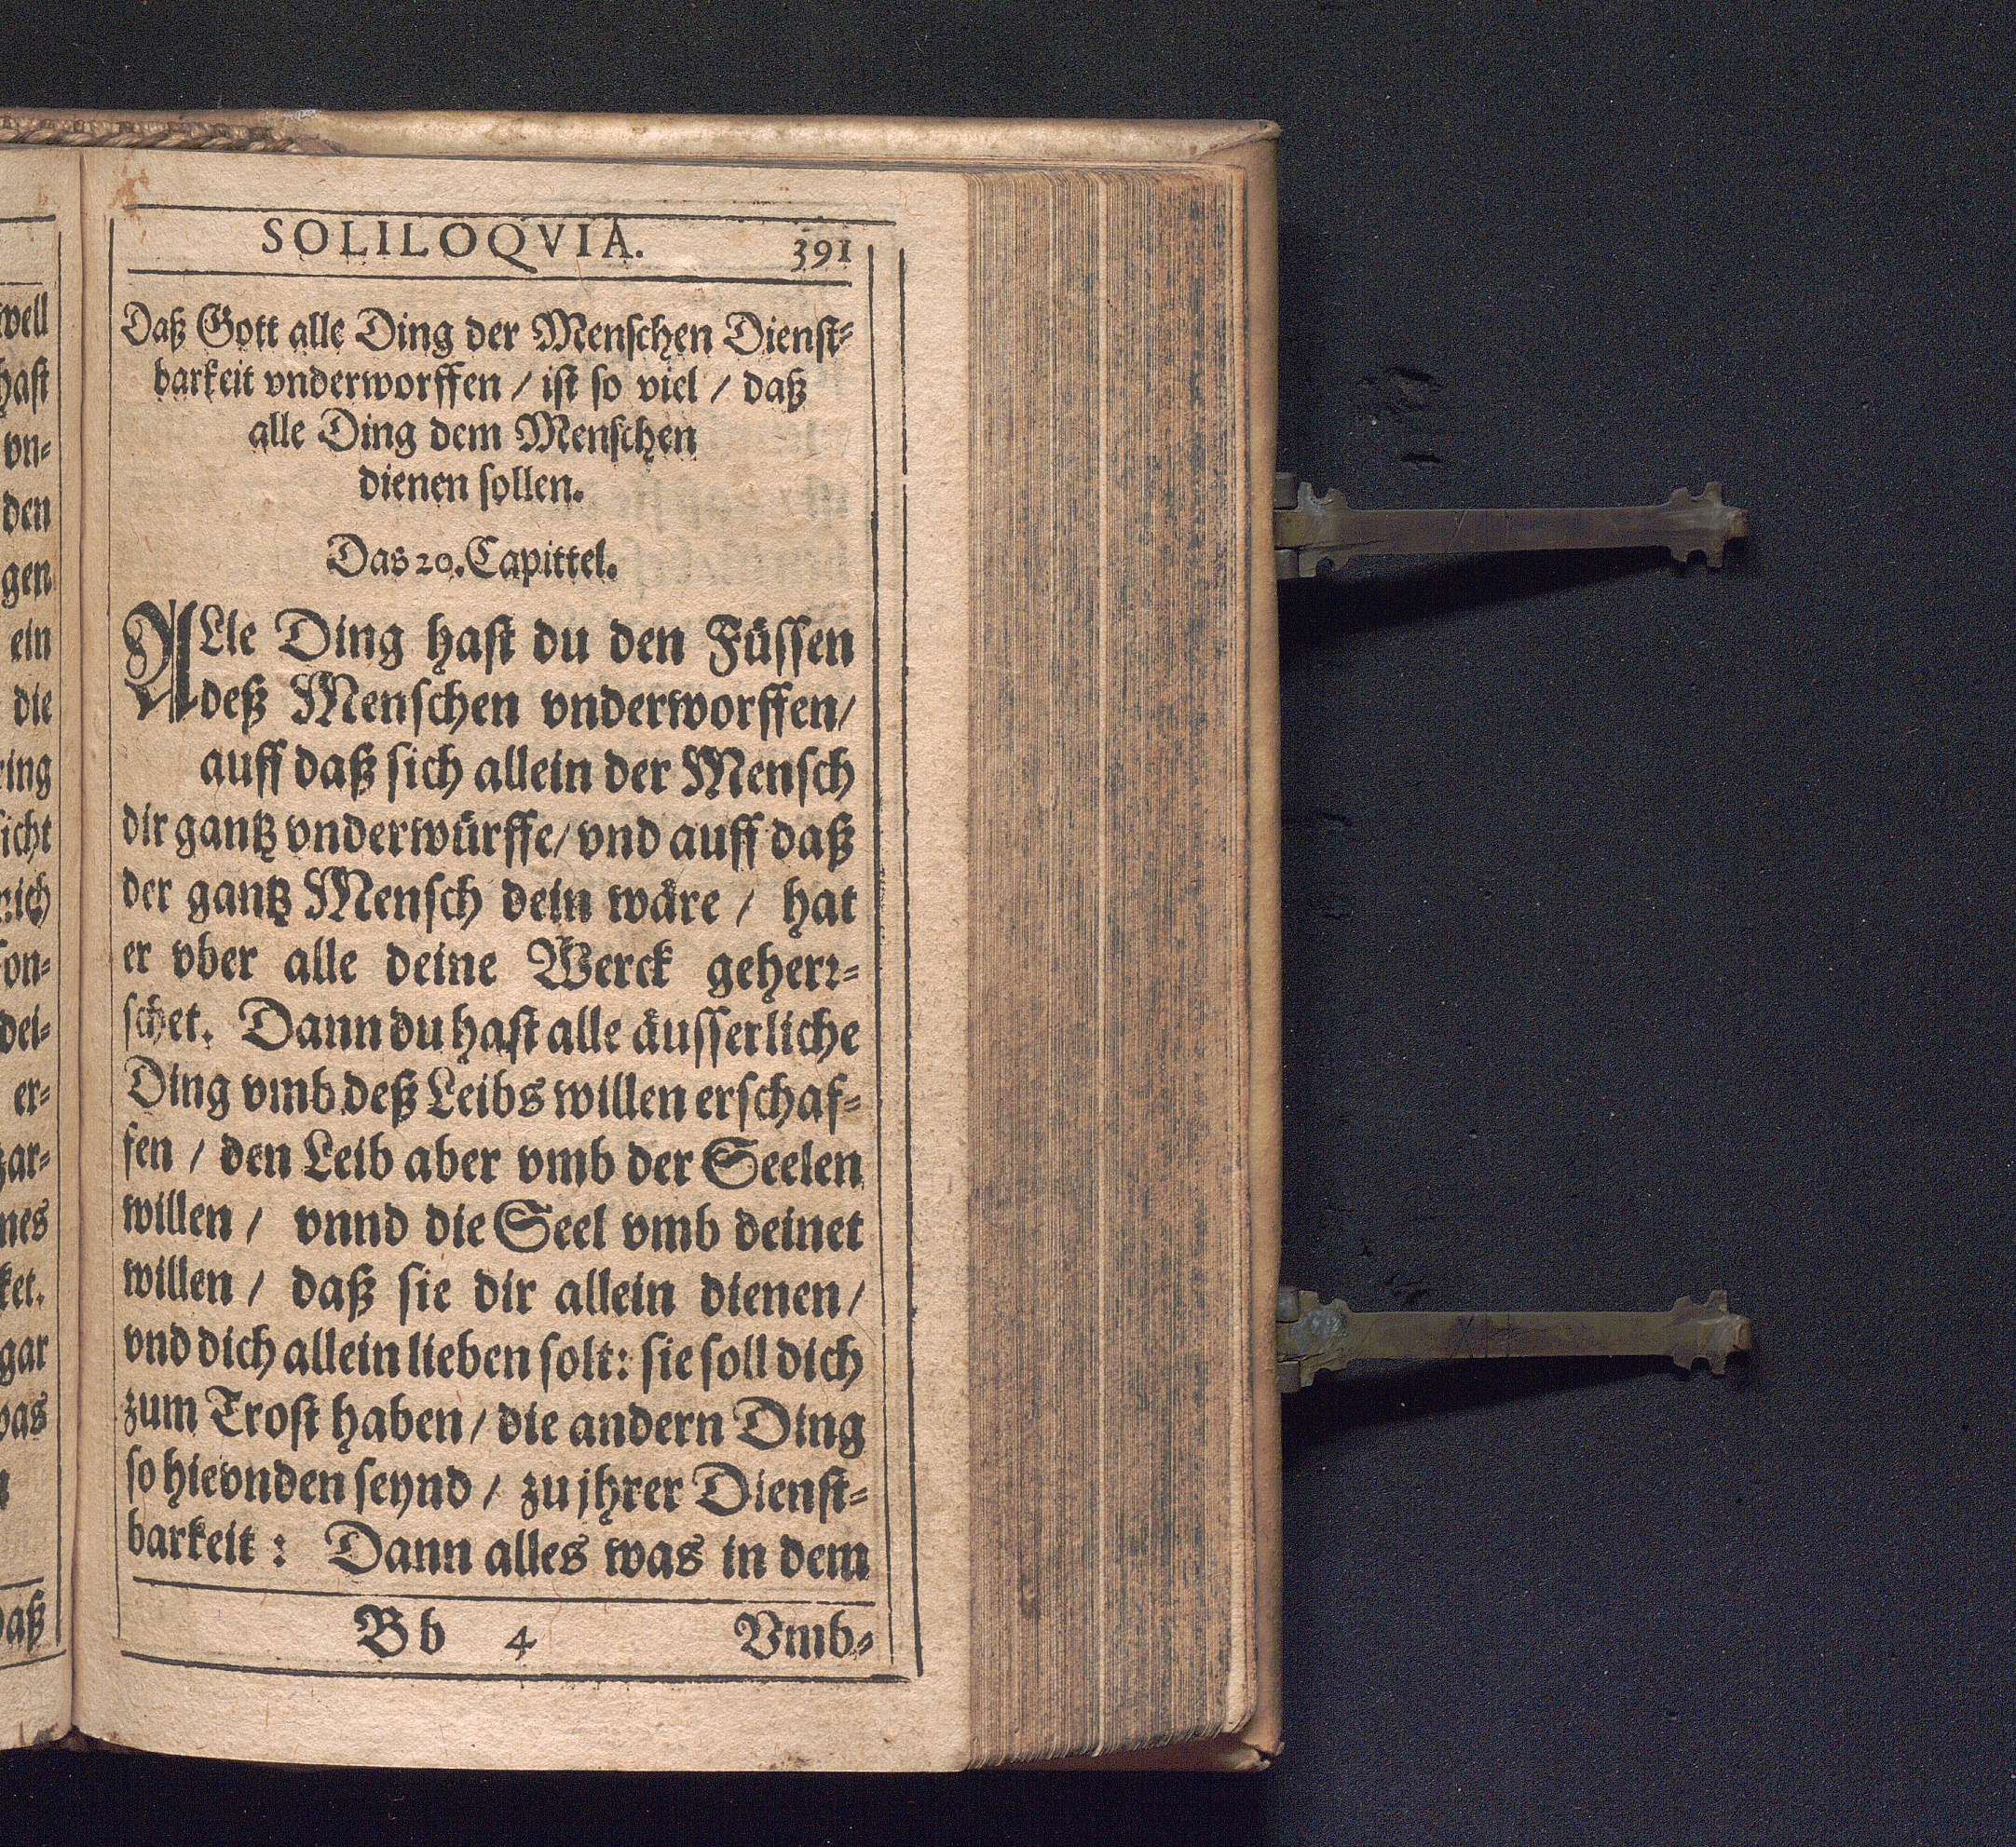 SOLILOQVIA. 391
Daß Gott alle Ding der Menschen Dienst-
barkeit vnderworffen / ist so viel / daß
alle Ding dem Menschen
dienen sollen.
Das 20. Capittel.
ALle Ding hast du den Füssen
deß Menschen vnderworffen/
auff daß sich allein der Mensch
dir gantz vnderwürffe/ vnd auff daß
der gantz Mensch dein wäre / hat
er vber alle deine Werck geherr-
schet. Dann du hast alle äusserliche
Ding vmb deß Leibs willen erschaf-
fen / den Leib aber vmb der Seelen
willen / vnnd die Seel vmb deinet
willen / daß sie dir allein dienen/
vnd dich allein lieben solt: sie soll dich
zum Trost haben/ die andern Ding
so hievnden seynd / zu jhrer Dienst-
barkeit : Dann alles was in dem
Bb 4 Vmb-